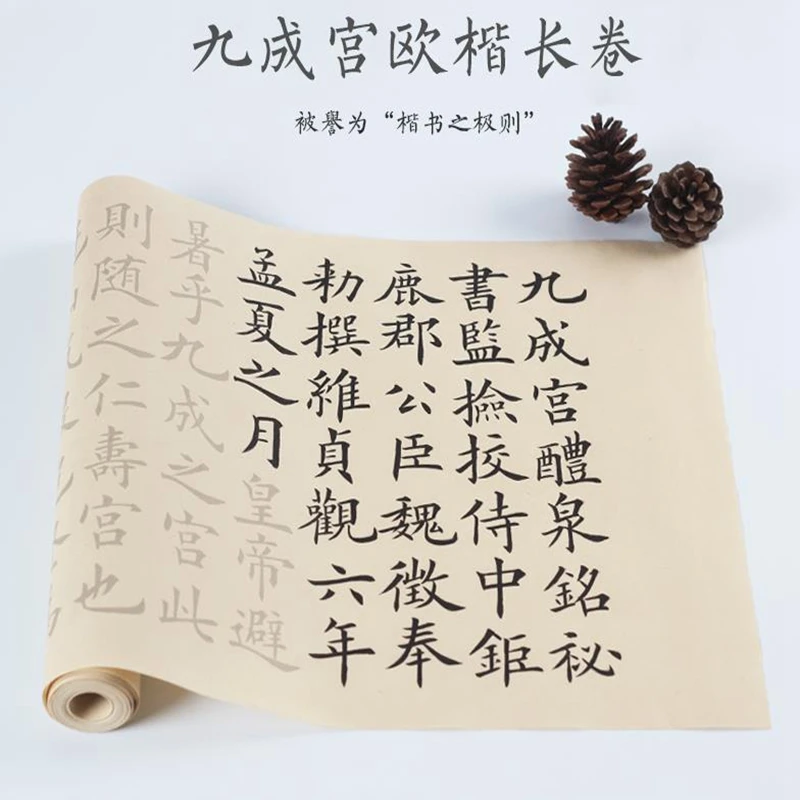 九成宫欧楷长卷
被誉为“楷书之极则”
九成宫醴泉銘祕
書監撿挍侍中鉅
鹿郡公臣魏徵奉
勑撰維貞觀六年
孟夏之月皇帝避
暑乎九成之宫此
則随之仁壽宫也